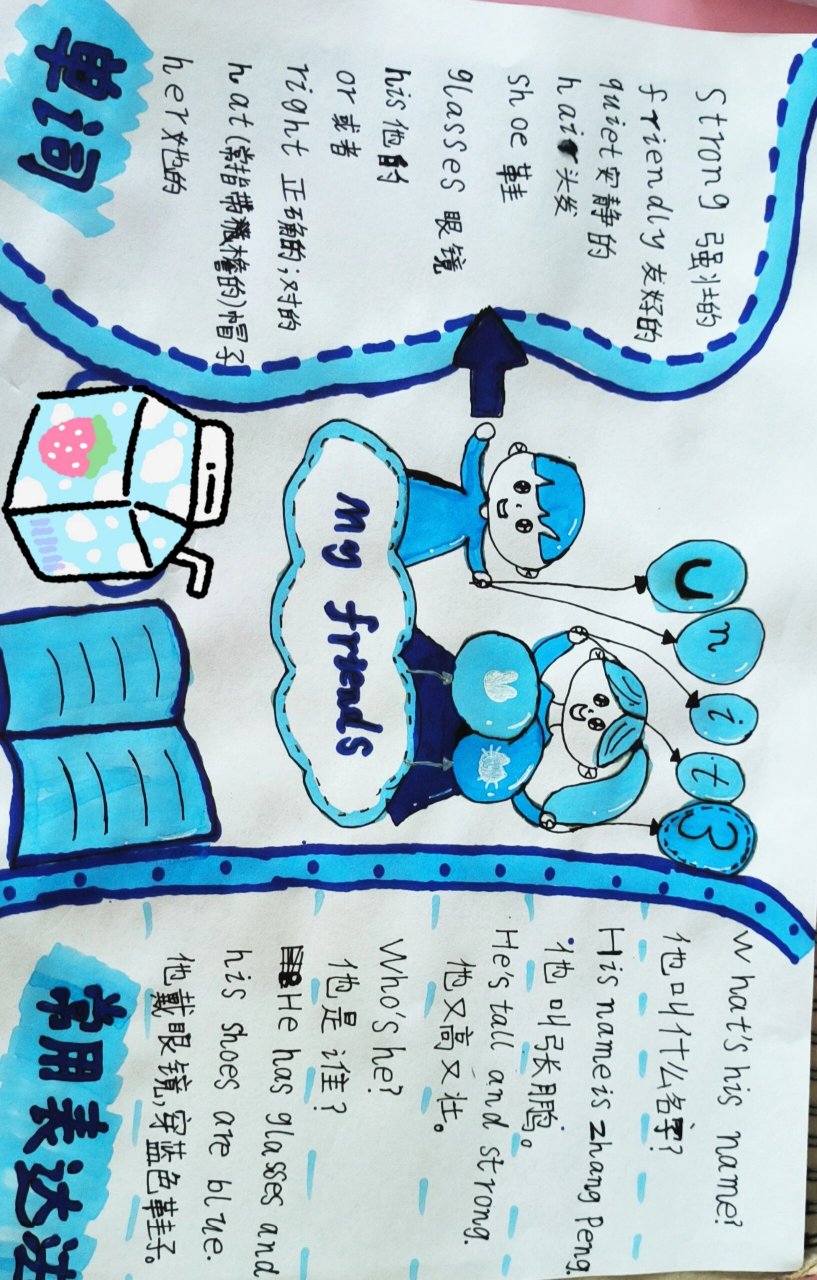 Strong 强壮的
friendly 友好的
quiet 安静的
hair 头发
shoe 鞋
glasses 眼镜
his 他的
or 或者
right 正确的;对的
hat (常指带檐的)帽子
her 她的
单词
Unit 3
My friends
What's his name?
他叫什么名字?
His name is Zhang Peng.
他叫张鹏。
He's tall and strong.
他又高又壮。
Who's he?
他是谁?
He has glasses and
his shoes are blue.
他戴眼镜,穿蓝色鞋子。
常用表达法